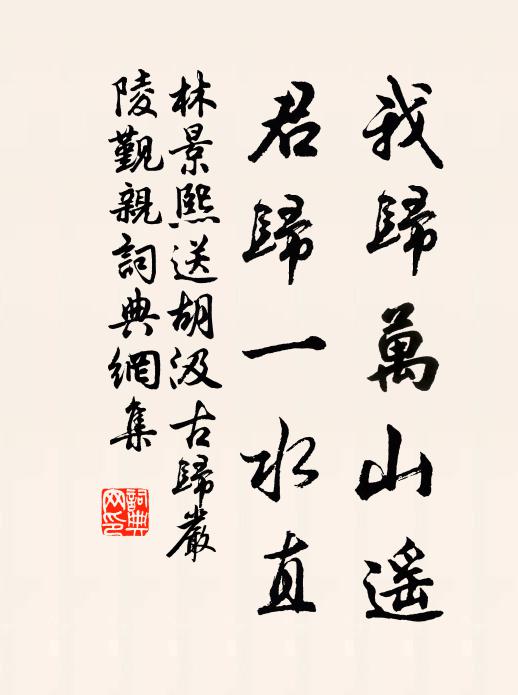 我歸萬山遥
君歸一水直
林景熙送胡汲古歸嚴
陵覲親詞典網集
詞典
网印